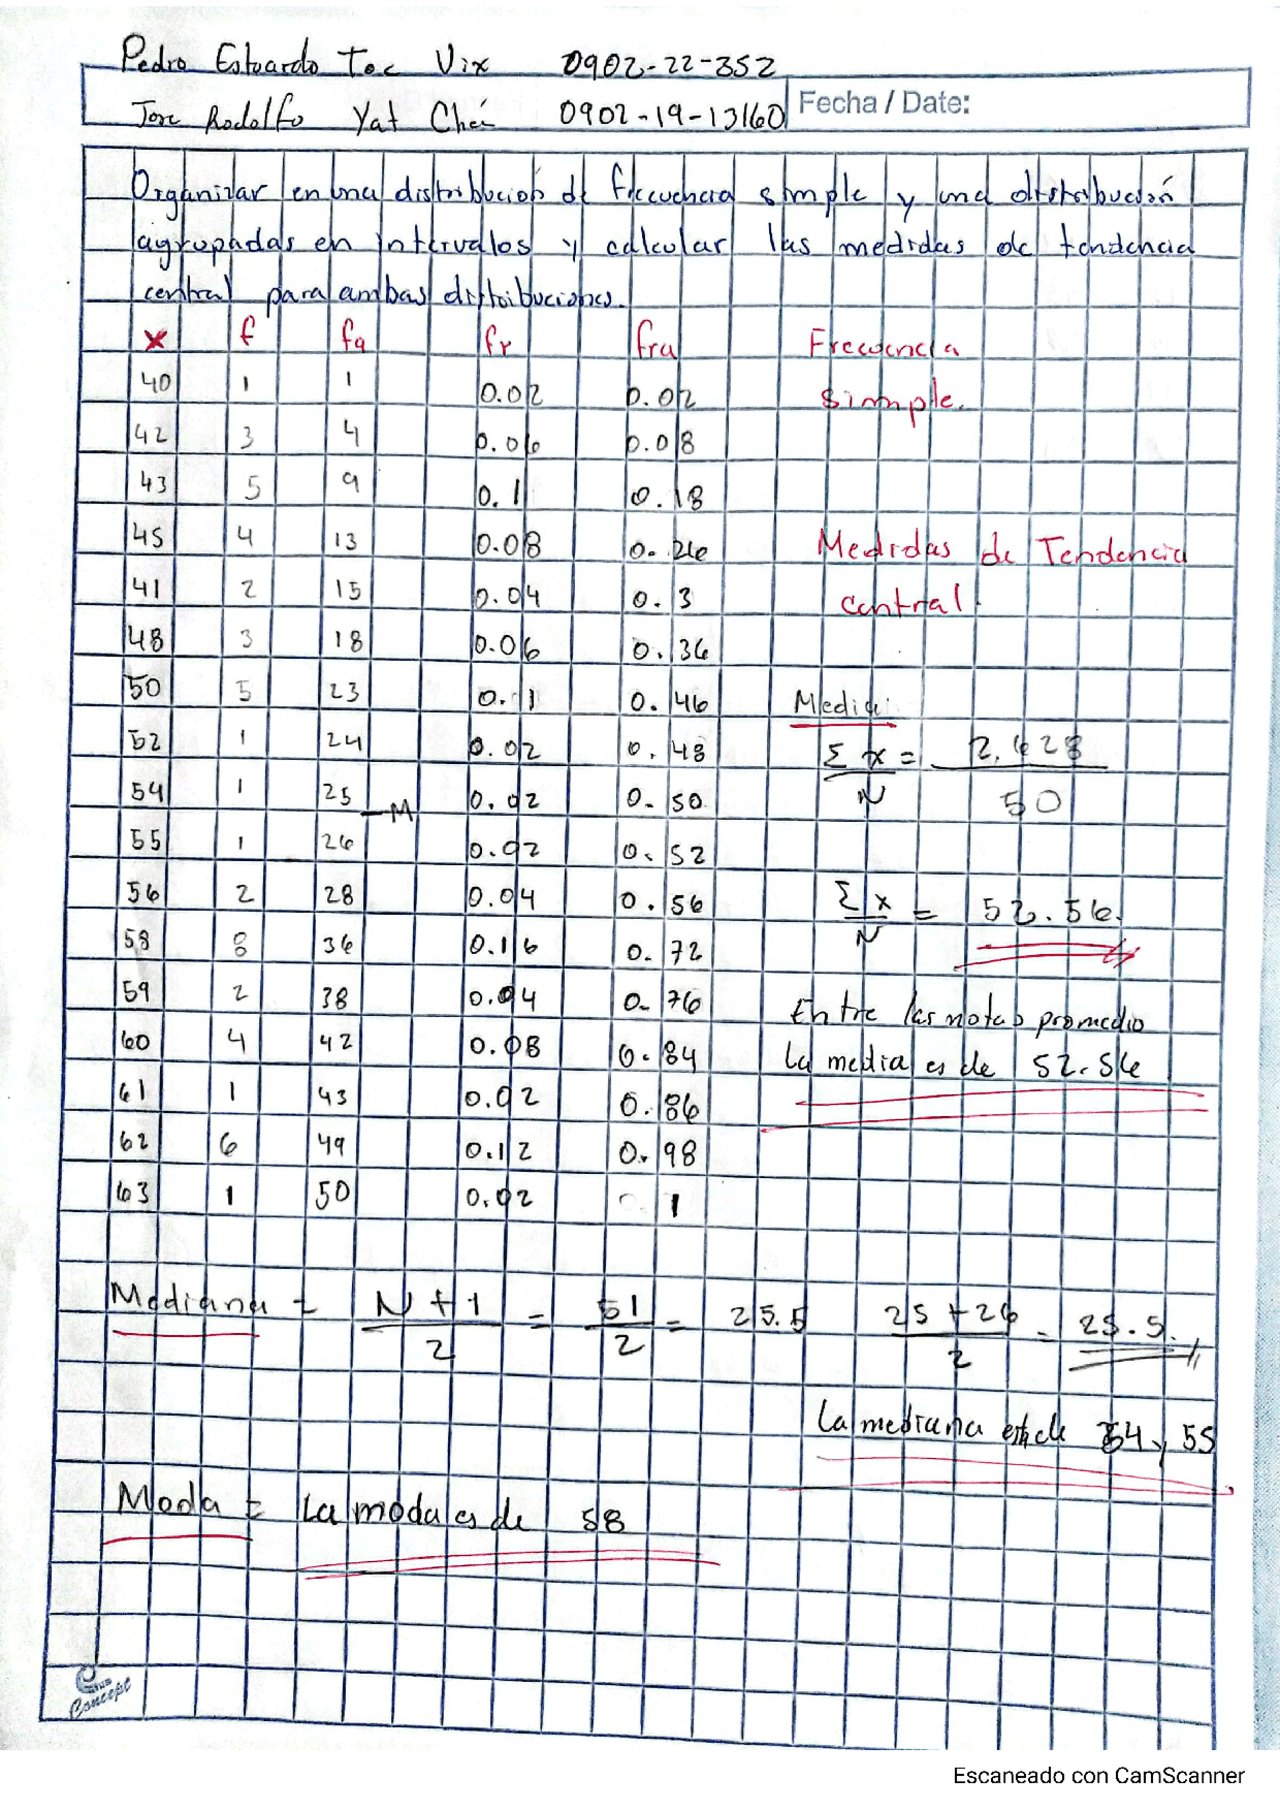 Pedro Estuardo Toc Vix 0902-22-352
Jose Rodolfo Yat Chá 0902-19-13160
Fecha / Date:
Organizar en una distribución de frecuencia simple y una distribución
agrupadas en intervalos y calcular las medidas de tendencia
central para ambas distribuciones.
x f fa fr fra Frecuencia
40 1 1 0.02 0.02 simple.
42 3 4 0.06 0.08
43 5 9 0.1 0.18
45 4 13 0.08 0.26 Medidas de Tendencia
41 2 15 0.04 0.3 central.
48 3 18 0.06 0.36
50 5 23 0.1 0.46 Media:
52 1 24 0.02 0.48 Σx/N = 2,628/50
54 1 25 —M 0.02 0.50
55 1 26 0.02 0.52
56 2 28 0.04 0.56 Σx/N = 52.56.
58 8 36 0.16 0.72
59 2 38 0.04 0.76 Entre las notas promedio
60 4 42 0.08 0.84 la media es de 52.56
61 1 43 0.02 0.86
62 6 49 0.12 0.98
63 1 50 0.02 1
Mediana = N+1/2 = 51/2 = 25.5 25+26/2 = 25.5.
La mediana está de 54 y 55
Moda = La moda es de 58
Concept
Escaneado con CamScanner